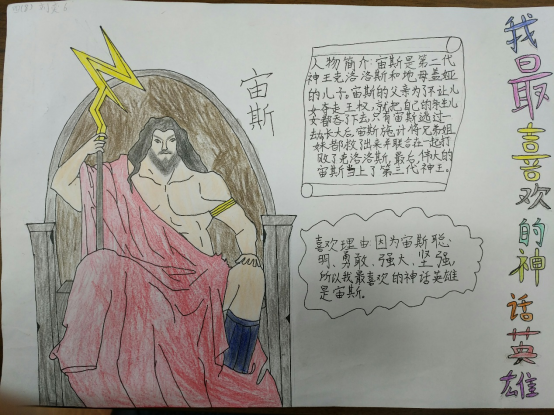 我最喜欢的神话英雄
宙斯
人物简介:宙斯是第二代
神王克洛洛斯和地母盖娅
的儿子。宙斯的父亲为了不让儿
女夺走王权,就把自己的亲生儿
女都吞了下去,只有宙斯逃过一
劫,长大后,宙斯施计将兄弟姐
妹都救了出来并联合在一起打
败了克洛洛斯,最后,伟大的
宙斯当上了第三代神王。
喜欢理由因为宙斯聪
明、勇敢、强大、坚强,
所以我最喜欢的神话英雄
是宙斯。